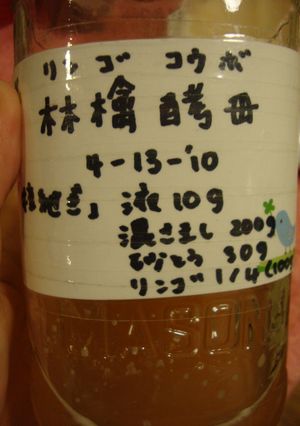 リンゴ コウボ
林檎酵母
4-13-'10
ぎ」 液 10g
湯さまし 200g
砂とう 30g
リンゴ 1/4 (100g
MASON